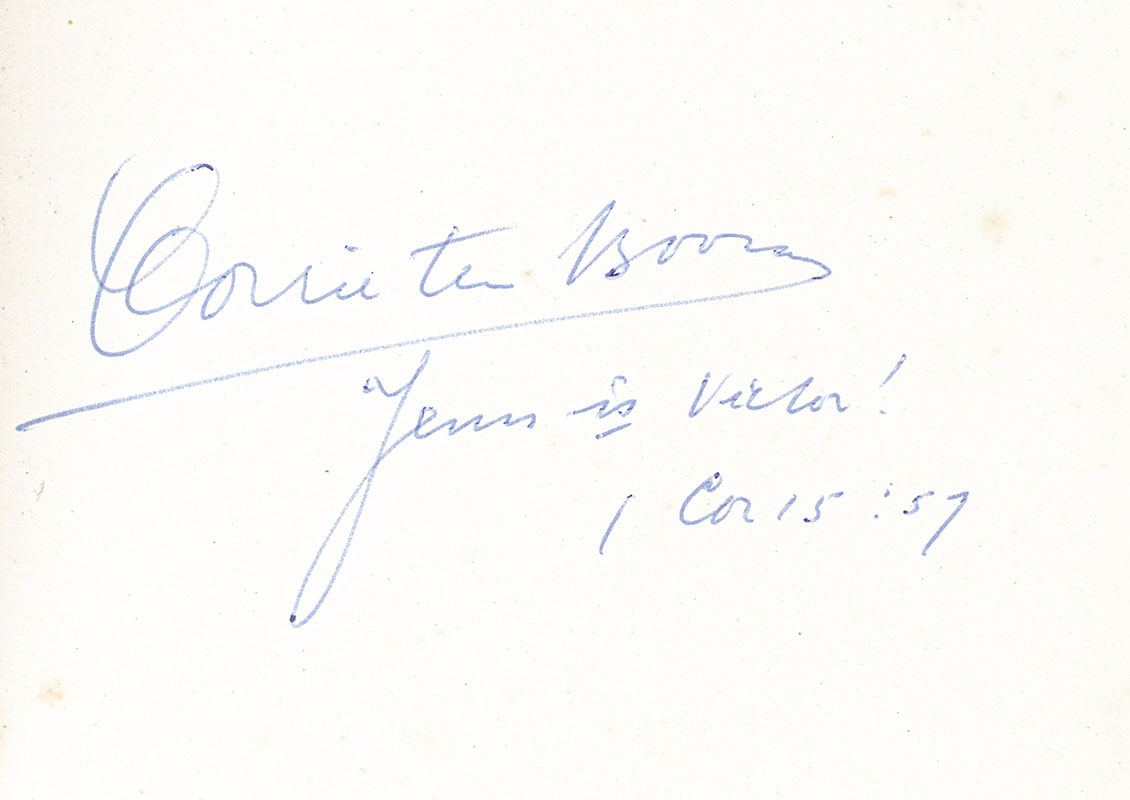 Corrie ten Boom
Jesus is Victor!
1 Cor 15:57